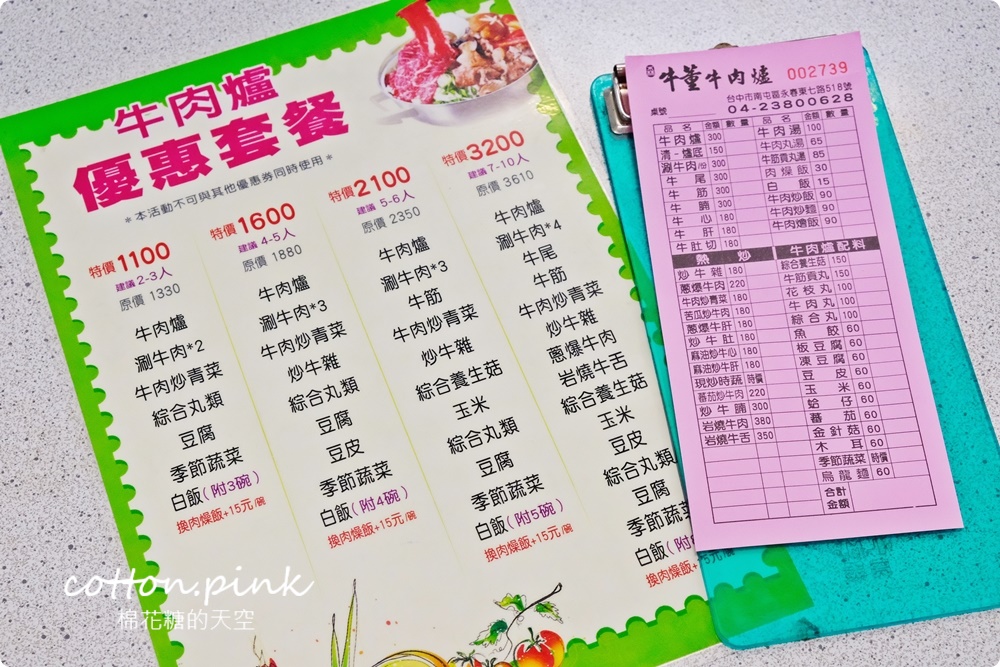 牛肉爐
優惠套餐
＊本活動不可與其他優惠券同時使用＊
特價1100
建議 2-3人
原價 1330
牛肉爐
涮牛肉*2
牛肉炒青菜
綜合丸類
豆腐
季節蔬菜
白飯(附3碗)
換肉燥飯+15元/碗
特價1600
建議 4-5人
原價 1880
牛肉爐
涮牛肉*3
牛肉炒青菜
炒牛雜
綜合丸類
豆腐
豆皮
季節蔬菜
白飯(附4碗)
換肉燥飯+15元/碗
特價2100
建議 5-6人
原價 2350
牛肉爐
涮牛肉*3
牛筋
牛肉炒青菜
炒牛雜
綜合養生菇
玉米
綜合丸類
豆腐
季節蔬菜
白飯(附5碗)
換肉燥飯+15元/碗
特價3200
建議 7-10人
原價 3610
牛肉爐
涮牛肉*4
牛尾
牛筋
牛肉炒青菜
炒牛雜
蔥爆牛肉
岩燒牛舌
綜合養生菇
玉米
豆皮
綜合丸類
豆腐
季節蔬菜
白飯(附
換肉燥飯+15元/碗
牛董牛肉爐 002739
台中市南屯區永春東七路518號
桌號 04-23800628
品名 金額 數量
牛肉爐 300
清-爐底 150
涮牛肉/份 300
牛尾 300
牛筋 300
牛腩 300
牛心 180
牛肝 180
牛肚切 180
熱炒
炒牛雜 180
蔥爆牛肉 220
牛肉炒青菜 180
苦瓜炒牛肉 180
蔥爆牛肝 180
炒牛肚 180
麻油炒牛心 180
麻油炒牛肝 180
現炒時蔬 時價
蕃茄炒牛肉 220
炒牛腩 300
岩燒牛肉 380
岩燒牛舌 350
品名 金額 數量
牛肉湯 100
牛肉丸湯 65
牛筋貢丸湯 85
肉燥飯 30
白飯 15
牛肉炒飯 90
牛肉炒麵 90
牛肉燴飯 90
牛肉爐配料
綜合養生菇 150
牛筋貢丸 150
花枝丸 150
牛肉丸 100
綜合丸 100
魚餃 60
板豆腐 60
凍豆腐 60
豆皮 60
玉米 60
蛤仔 60
蕃茄 60
金針菇 60
木耳 60
季節蔬菜 時價
烏龍麵 60
合計
金額
cotton.pink
棉花糖的天空